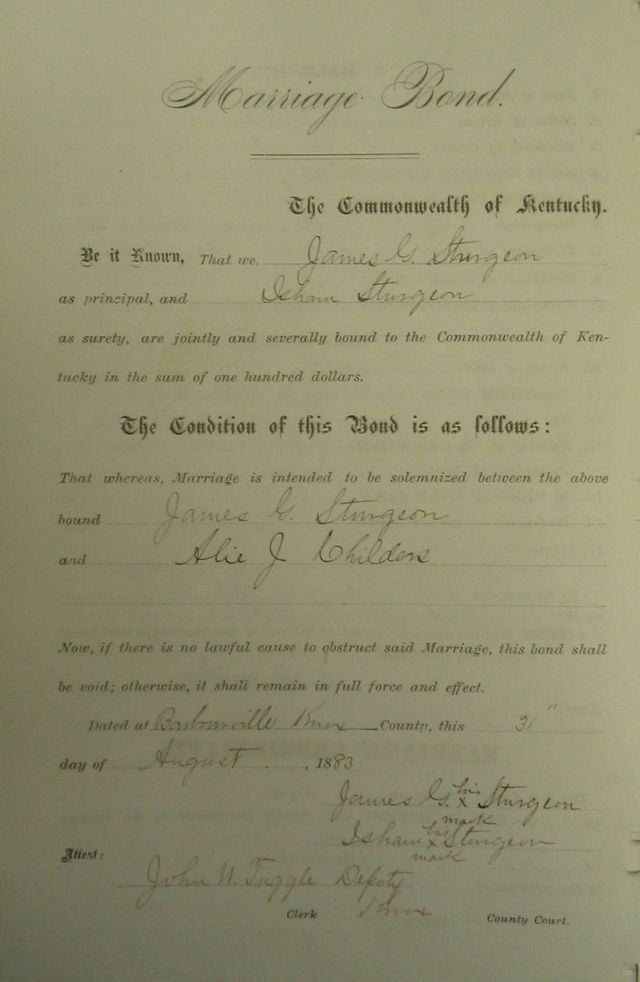 Marriage Bond.
The Commonwealth of Kentucky.
Be it Known, That we, James G. Sturgeon
as principal, and Isham Sturgeon
as surety, are jointly and severally bound to the Commonwealth of Ken-
tucky in the sum of one hundred dollars.
The Condition of this Bond is as follows:
That whereas, Marriage is intended to be solemnized between the above
bound James G. Sturgeon
and Alie J Childers
Now, if there is no lawful cause to obstruct said Marriage, this bond shall
be void; otherwise, it shall remain in full force and effect.
Dated at Barbourville Knox County, this 31"
day of August, 1883
James G. his x mark Sturgeon
Isham his x mark Sturgeon
Attest:
John W. Tuggle Deputy
Clerk Knox County Court.